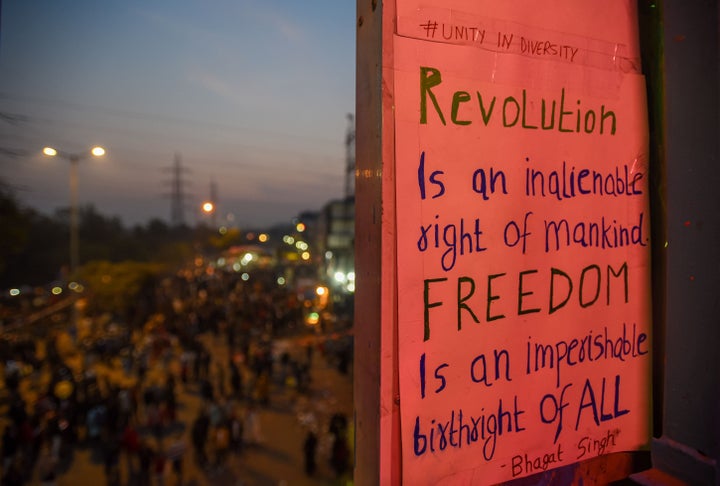 #UNITY IN DIVERSITY
Revolution
Is an inalienable
right of mankind.
FREEDOM
Is an imperishable
birthright of ALL
- Bhagat Singh